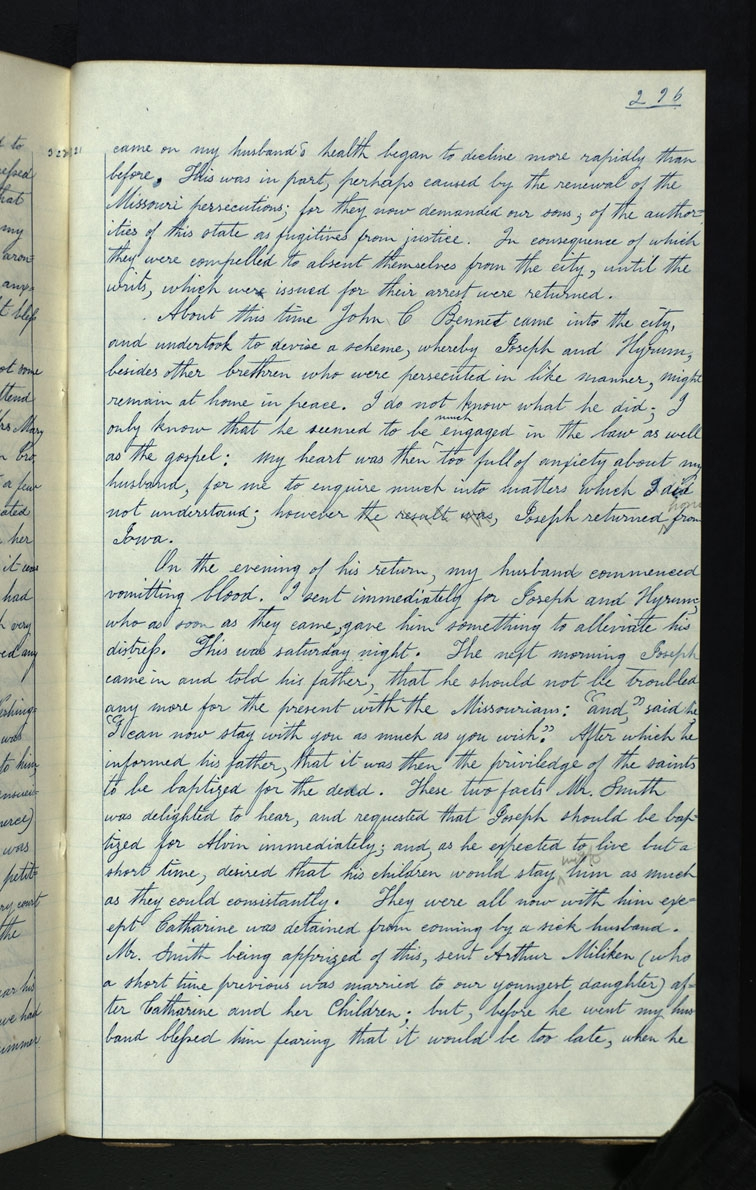 296
came on my husband's health began to decline more rapidly than
before. This was in part, perhaps caused by the renewal of the
Missouri persecutions; for they now demanded our sons, of the author-
ities of this state as fugitives from justice. In consequence of which
they were compelled to absent themselves from the city, until the
writs, which were issued for their arrest were returned.
About this time John C Bennet came into the city,
and undertook to devise a scheme, whereby Joseph and Hyrum,
besides other brethren who were persecuted in like manner, might
remain at home in peace. I do not know what he did; I
only know that he seemed to be much engaged in the law as well
as the gospel: my heart was then too full of anxiety about my
husband, for me to enquire much into matters which I did
not understand; however the result was, Joseph returned from
Iowa.
On the evening of his return, my husband commenced
vomitting blood. I sent immediately for Joseph and Hyrum,
who as soon as they came, gave him something to alleviate his
distress. This was saturday night. The next morning Joseph
came in and told his father, that he should not be troubled
any more for the present with the Missourians: "and," said he
"I can now stay with you as much as you wish." After which he
informed his father, that it was then the priviledge of the saints
to be baptized for the dead. These two facts Mr. Smith
was delighted to hear, and requested that Joseph should be bap-
tized for Alvin immediately; and, as he expected to live but a
short time, desired that his children would stay with him as much
as they could consistantly. They were all now with him exc-
ept Catharine was detained from coming by a sick husband.
Mr. Smith being apprized of this, sent Arthur Miliken (who
a short time previous was married to our youngest daughter) af-
ter Catharine and her Children; but, before he went my hus
band blessed him fearing that it would be too late, when he